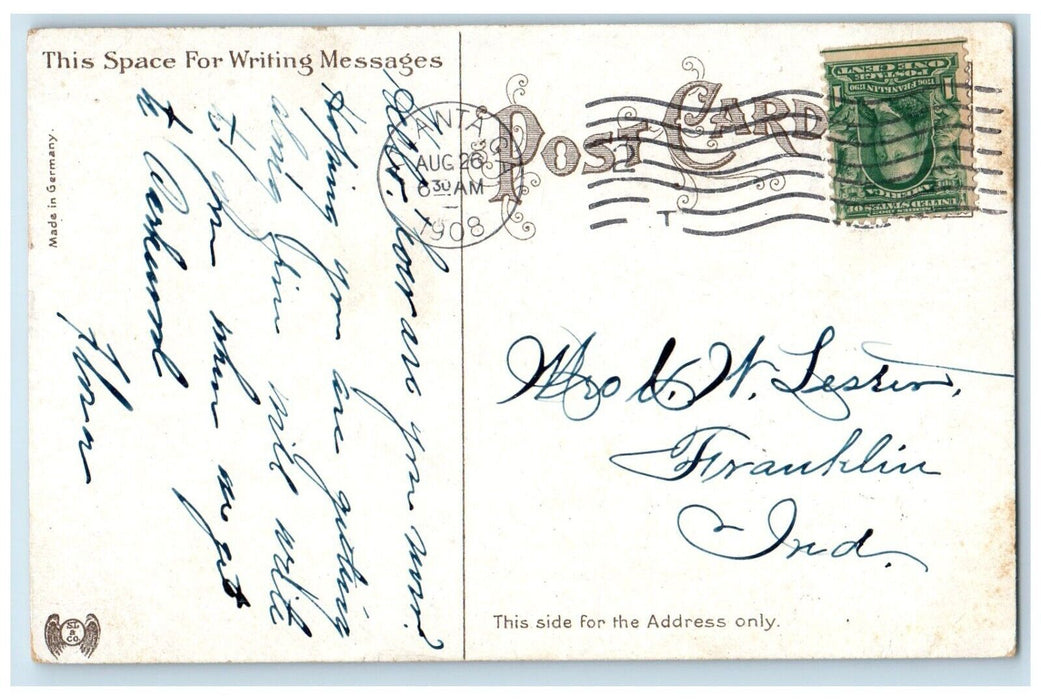 This Space For Writing Messages
How are you now?
Hoping you are getting
along fine will write
to you when we get
to
Made in Germany.
S L & Co.
POST CARD
ANTA
AUG 26
6 30 AM
1908
2
T
POSTAGE
ONE CENT
1706 FRANKLIN 1790
1
1
SERIES 1902
UNITED STATES OF
AMERICA
Mrs W. Lester,
Franklin
Ind.
This side for the Address only.